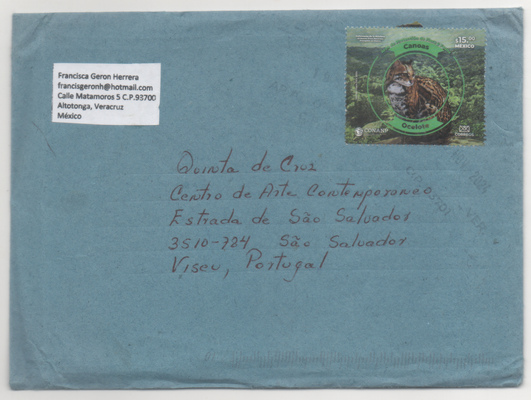 Francisca Geron Herrera
francisgeronh@hotmail.com
Calle Matamoros 5 C.P.93700
Altotonga, Veracruz
México
$15.00
MÉXICO
Canoas
Ocelote
CORREOS
Quinta de Cruz
Centro de Arte Contemporaneo
Estrada de São Salvador
3510-784 São Salvador
Viseu, Portugal